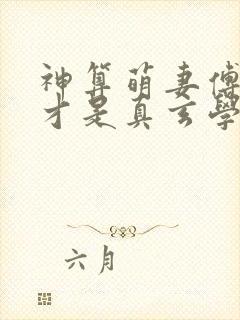 神算萌妻傅
才是真玄學
六月